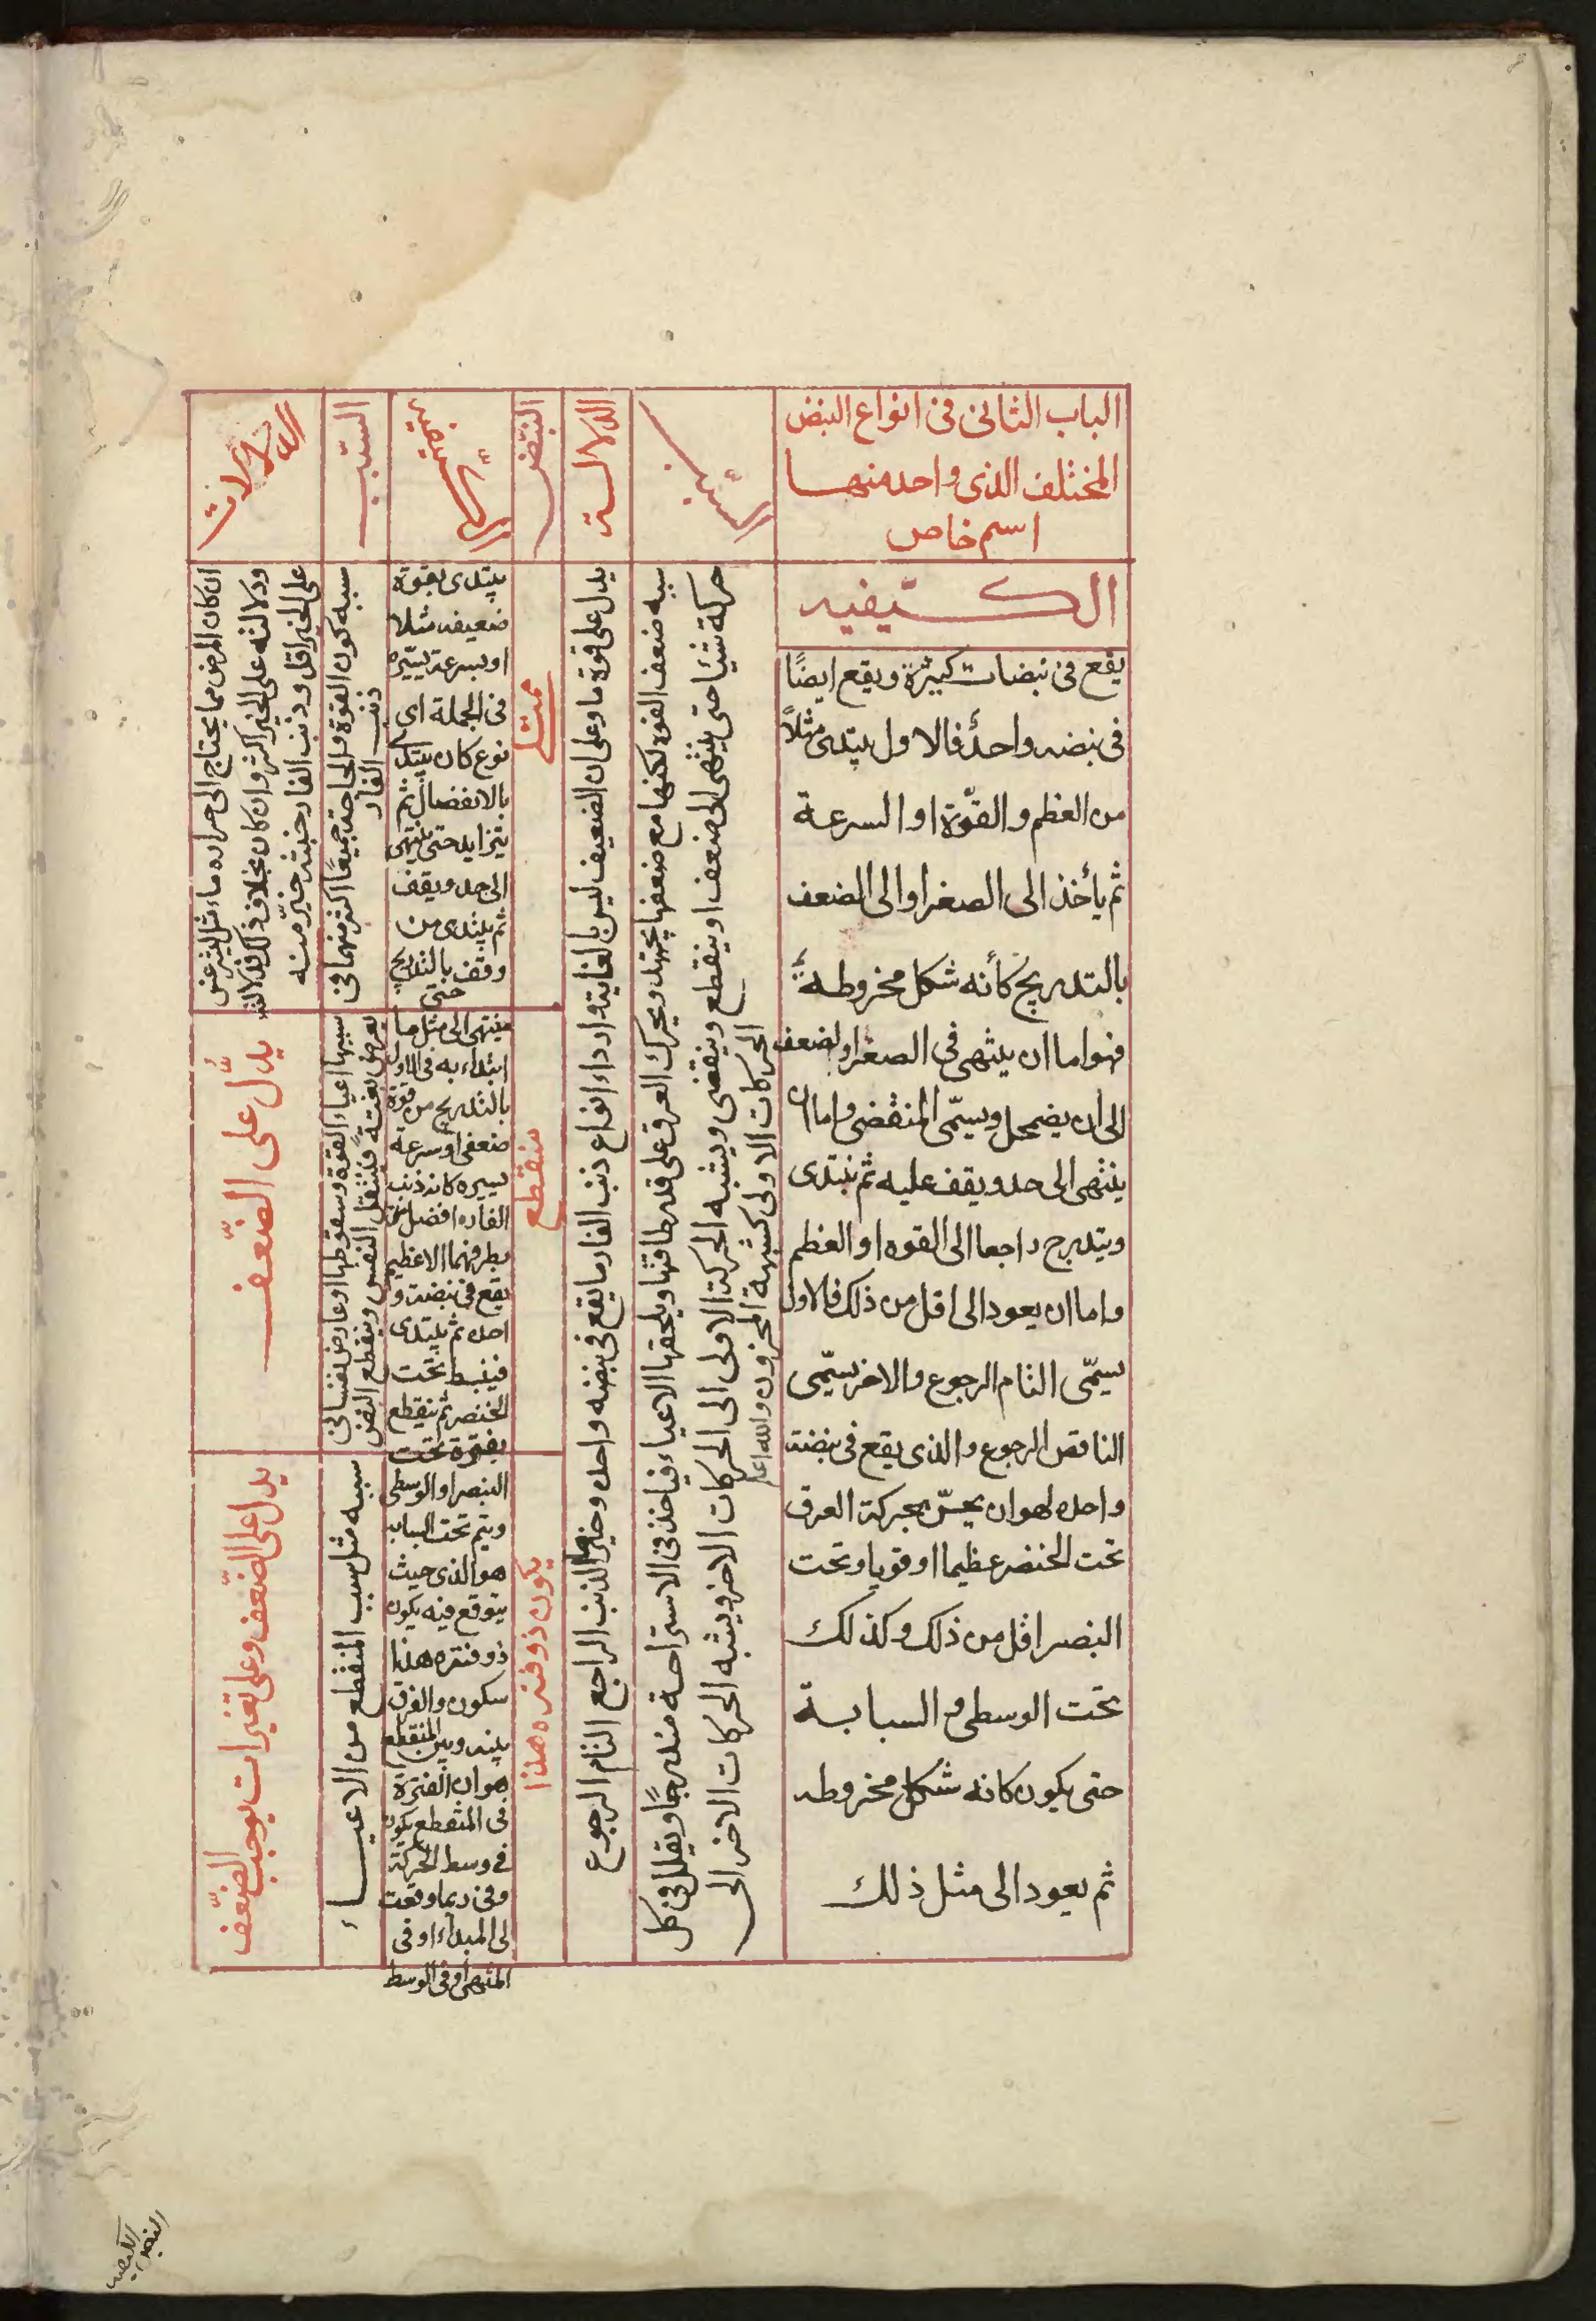 الباب الثانى فى انواع النبض
المختلف الذى واحد منها
اسم خاص
الكيفيه
يقع فى نبضات كبيرة ويقع ايضًا
فى نبضه واحدة فالاول يبتدى مثلاً
من العظم والقوّة او السرعة
ثم يأخذ الى الصغر او الى الضعف
بالتدريج كأنه شكل مخروطة
فهو اما ان ينتهى فى الصغر او لضعف
الى ان يضمحل ويسمّى المنقضى واما ان
ينتهى الى حد ويقف عليه ثم يبتدى
ويتدرج راجعا الى القوه او العظم
واما ان يعود الى اقل من ذلك فالاول
يسمّى التام الرجوع والاخر يسمّى
الناقص الرجوع والذى يقع فى نبضة
واحده فهو ان يحسّ بحركة العرق
تحت الخنصر عظيما او قويا وتحت
البنصر اقل من ذلك وكذلك
تحت الوسطى و السبابة
حتى يكون كانه شكل مخروطه
ثم يعود الى مثل ذلك
السبب
سببه ضعف القوة لكنها مع ضعفها تجتهد ويحرك العرق على قدر طاقتها ويلحقها الاعياء فياخذ فى الاستراحة متدرجًا ويقلل فى كل
حركة شيئا حتى ينتهى الى ضعف او ينقطع وينقضى ويشبه الحركة الاولى الى الحركات الاخر ويشبه الحركات الاخر الى
الحركات الاولى كشبهة المخزون والله اعلم
الدلالة
يدل على قوة ما وعلى ان الضعيف ليس بالغاية واردا انواع ذنب الفار ما يقع فى نبضه واحده وخيرها الذنب الراجع التام الرجوع
النبض
ممتلى
منقطع
يكون ذو فتره هذا
الكيفية
يبتدى بقوة
ضعيفه مثلا
او بسرعة يسيره
فى الجملة اى
نوع كان يبتدى
بالانفصال ثم
يتزايد حتى ينتهى
الى حد ويقف
ثم يبتدى من
وقف بالتدريج
حتى
ينتهى الى مثل ما
ابتداء به فى الاول
بالتدريج من قوة
ضعفى او سرعة
يسيره كانه ذنب
الفاره افضل
بطرفهما الاعظيم
يقع فى نبضة و
احده ثم يبتدى
فينبسط تحت
الخنصر ثم ينقطع
بفترة تحت
البنصر او الوسطى
ويتم تحت السبابه
هو الذى حيث
يتوقع فيه يكون
ذو فتره هذا
سكون والفرق
بينه وبين المنقطع
هو ان الفترة
فى المنقطع يكون
فى وسط الحركة
وفى ربما وقعت
لى المبداء او فى
المنتهى او فى الوسط
السبب
سببه كون القوة والحاجة جميعًا اكثر منهما فى
ذنب الفار
سببها اعياء القوة وسقوطها او عارض نفسانى
يعرض بغتة فيشتغل النفس وينقطع النبض
سببه مثل سبب المنقطع من الاعياء
الدلالات
ان كان المرض مما يحتاج الى حراره ما
ودلالته على الخير اكثر وان كان بخلاف ذلك فدلالته
على الخير اقل وذنب الفار حينئذ خير منه
يدل على الضّعف
يدل على الضّعف وعلى تغيرات يوجب الضّعف